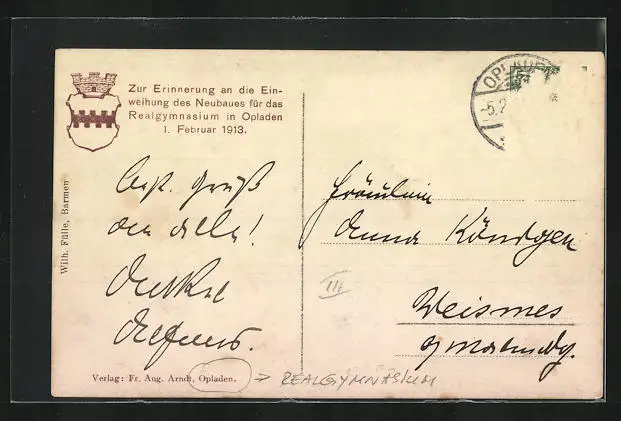 Zur Erinnerung an die Ein-
weihung des Neubaues für das
Realgymnasium in Opladen
1. Februar 1913.
OPLADEN
-5.2
Gruß
an alle!
Onkel
Wilh. Fülle, Barmen
Fräulein
Anna Köntgen
Weismes
III
Verlag: Fr. Aug. Arndt, Opladen.
→ REALGYMNASIUM